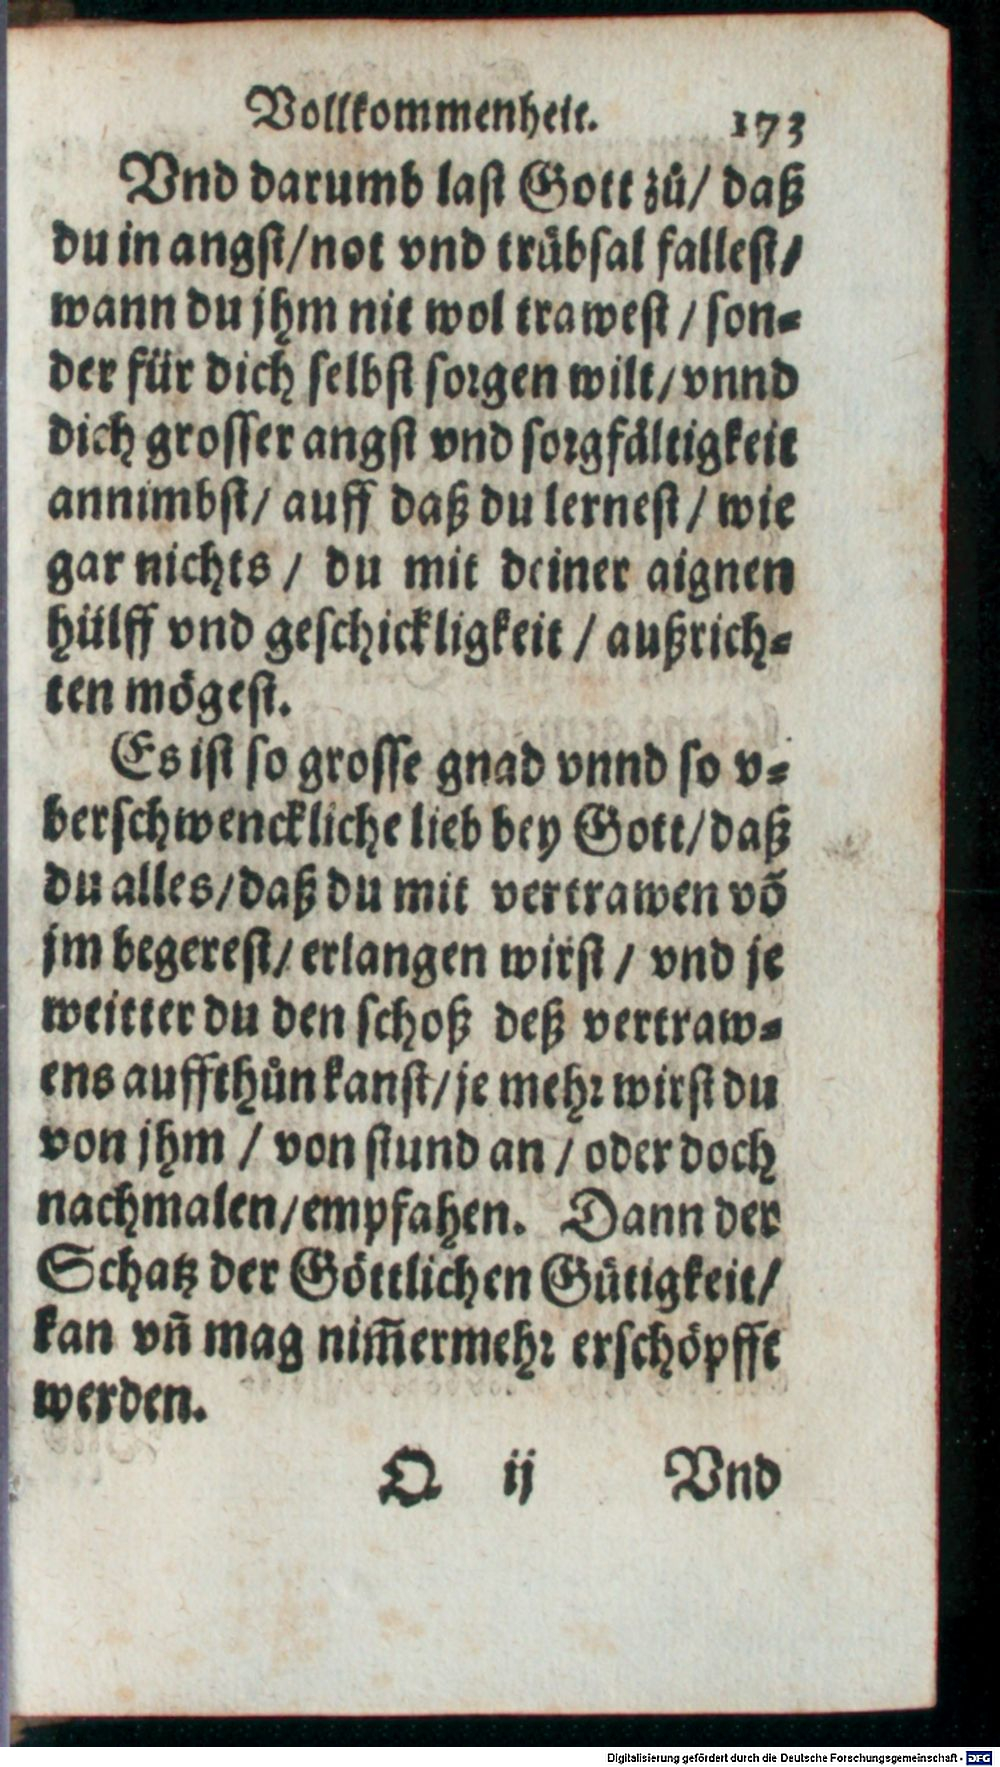 Vollkommenheit. 173
Vnd darumb last Gott zů/ daß
du in angst/not vnd trübsal fallest/
wann du jhm nit wol trawest / son-
der für dich selbst sorgen wilt/vnnd
dich grosser angst vnd sorgfältigkeit
annimbst/ auff daß du lernest / wie
gar nichts / du mit deiner aignen
hülff vnd geschickligkeit / außrich-
ten mögest.
Es ist so grosse gnad vnnd so v-
berschwenckliche lieb bey Gott/daß
du alles/daß du mit vertrawen võ
jm begerest/ erlangen wirst / vnd je
weitter du den schoß deß vertraw-
ens auffthůn kanst/je mehr wirst du
von jhm / von stund an / oder doch
nachmalen/empfahen. Dann der
Schatz der Göttlichen Gütigkeit/
kan vñ mag nim̃ermehr erschöpfft
werden.
Q ij Vnd
Digitalisierung gefördert durch die Deutsche Forschungsgemeinschaft - DFG